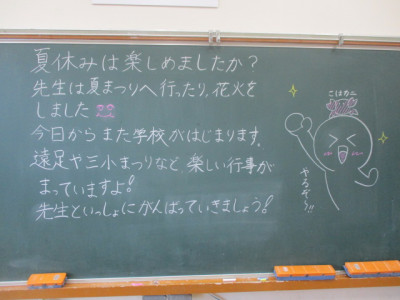 夏休みは楽しめましたか？
先生は夏まつりへ行ったり、花火を
しました
今日からまた学校がはじまります。
遠足や三小まつりなど、楽しい行事が
まっていますよ！
先生といっしょにがんばっていきましょう！
こはカニ
やるぞ〜!!